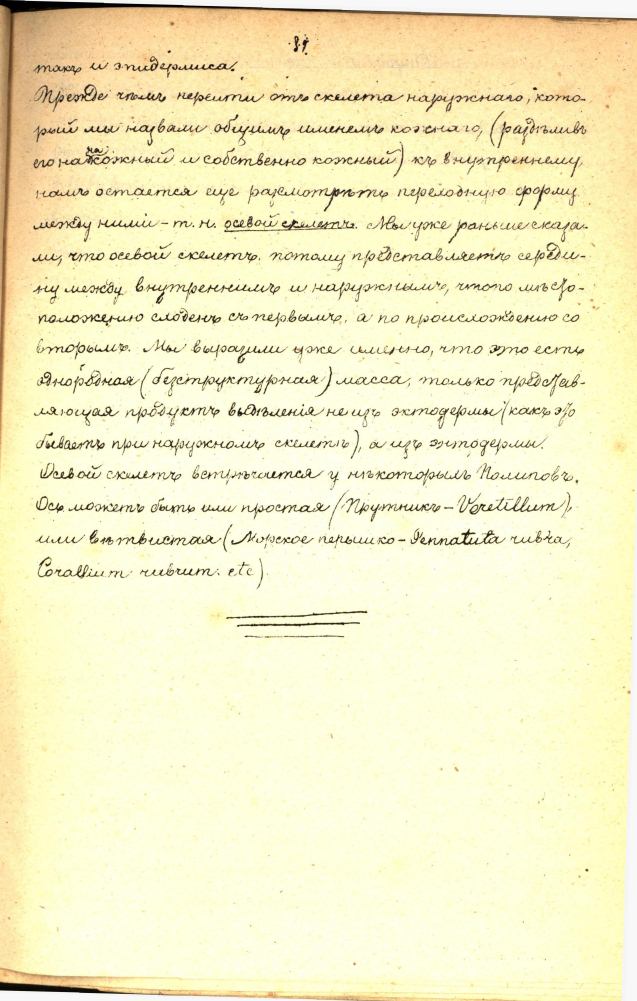 81
такъ и эпидермиса.
Прежде чѣмъ перейти отъ скелета наружнаго, кото-
рый мы назвали общимъ именемъ кожнаго, (раздѣливъ
его на накожный и собственно кожный) къ внутреннему,
намъ остается еще разсмотрѣть переходную форму
между ними – т. н. осевой скелетъ. Мы уже раньше сказа-
ли, что осевой скелетъ. потому представляетъ середи-
ну между внутреннимъ и наружнымъ, что по мѣсто-
положенію сходенъ съ первымъ, а по происхожденію со
вторымъ. Мы выразили уже именно, что это есть
однородная (безструктурная) масса, только представ-
ляющая продуктъ выдѣленія не изъ эктодермы (какъ это
бываетъ при наружномъ скелетѣ), а изъ энтодермы.
Осевой скелетъ встрѣчается у нѣкоторыхъ Полиповъ.
Ось можетъ быть или простая (Прутникъ – Veretillum),
или вѣтвистая (Морское перышко – Pennatula rubra,
Corallium rubrum. etc)